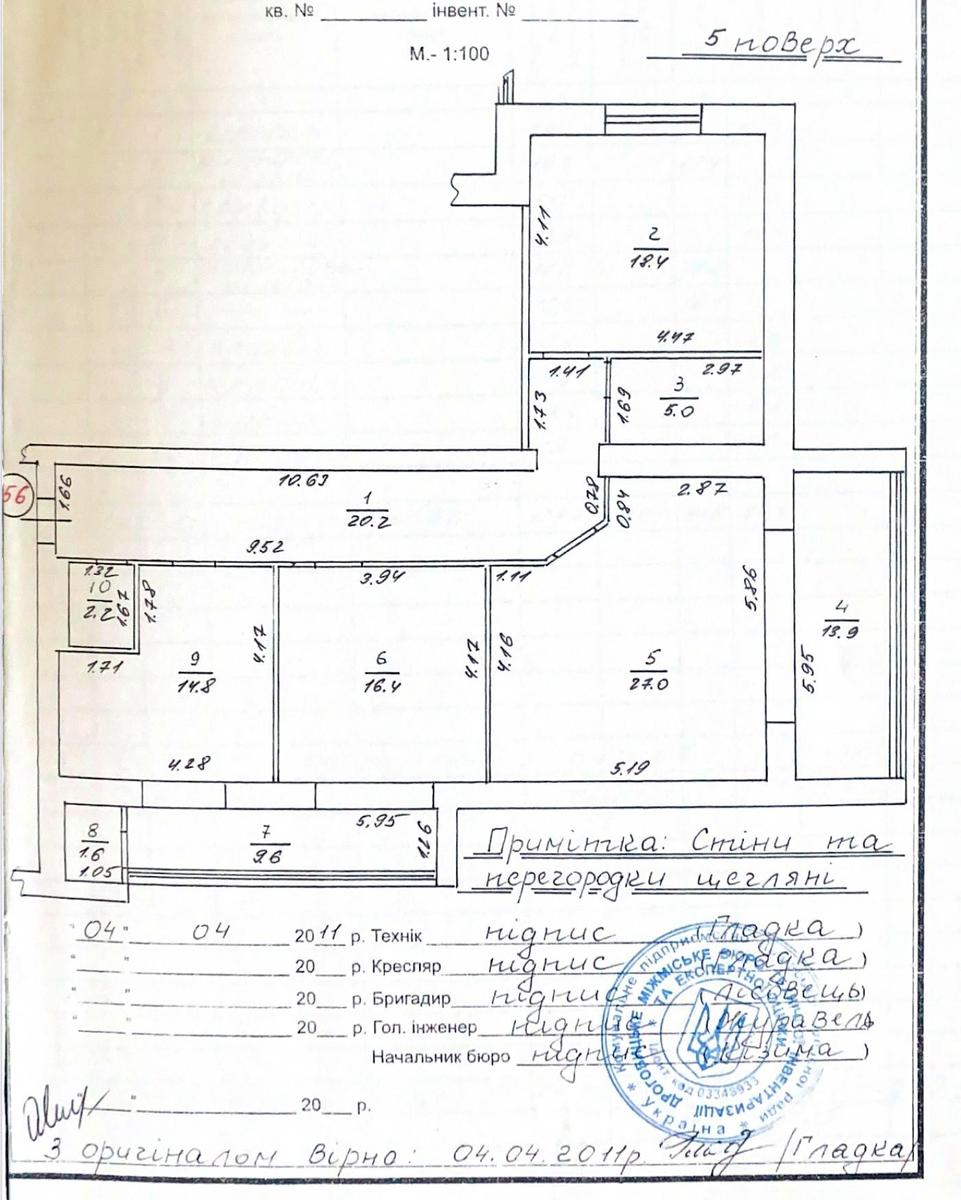 кв. № ____________ інвент. № ____________
М.- 1:100
5 поверх
4.11
2
18.4
4.47
1.41
2.97
3
5.0
1.73
1.69
56
1.66
10.63
1
20.2
9.52
0.78
0.84
2.87
1.32
10
2.2
1.67
1.78
3.94
1.11
5.86
4
13.9
1.71
9
14.8
4.17
6
16.4
4.17
4.16
5
27.0
5.95
4.28
5.19
8
1.6
1.05
7
9.6
5.95
1.26
Примітка: Стіни та
перегородки щегляні
"04" 04 2011 р. Технік підпис (Гладка)
"__" ____________ 20__ р. Кресляр підпис (Гладка)
"__" ____________ 20__ р. Бригадир підпис (Лісовець)
"__" ____________ 20__ р. Гол. інженер підпис (Журавель)
Начальник бюро підпис (Кізима)
"__" ____________ 20__ р.
Комунальне підприємство
ДРОГОБИЦЬКЕ МІЖМІСЬКЕ БЮРО
ТА ЕКСПЕРТНОЇ
ІНВЕНТАРИЗАЦІЇ
код 03348933
* Україна *
З оригіналом вірно: 04.04.2011р. /Гладка/